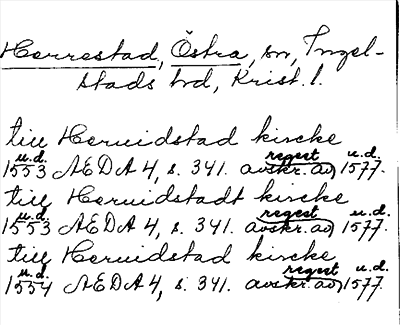 Herrestad, Östra, sn, Ingel-
stads hd, Krist. l.
till Heruidstad kircke
u.d. regest u.d.
1553 ÆDA 4, s. 341. avskr. av 1577.
till Heruidstadt kircke
u.d. regest u.d.
1553 ÆDA 4, s. 341. avskr. av 1577.
till Heruidstad kircke
u.d. regest u.d.
1554 ÆDA 4, s. 341. avskr. av 1577.